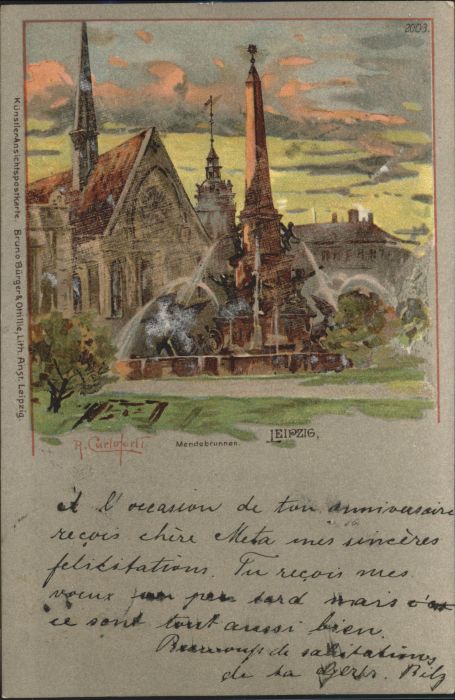 2003.
Künstler-Ansichtspostkarte. Bruno Bürger & Ottillie, Lith. Anst. Leipzig.
R. Carloforti
Mendebrunnen.
LEIPZIG,
A l'occasion de ton anniversaire
reçois chère Meta mes sincères
félicitations. Tu reçois mes
voeux un peu tard mais
ce sont tout aussi bien.
Beaucoup de salutations
de ta